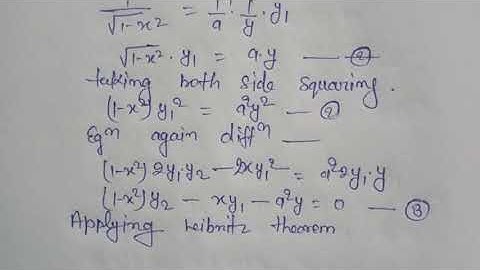 1/√1-x² = 1/a · 1/y · y₁
√1-x² · y₁ = a·y —— ②
taking both side squaring.
(1-x²) y₁² = a²y² —— ②
Eqⁿ again diffⁿ ——
(1-x²) 2y₁·y₂ - 2xy₁² = a²2y₁·y
(1-x²)y₂ - xy₁ - a²y = 0 —— ③
Applying Leibnitz theorem